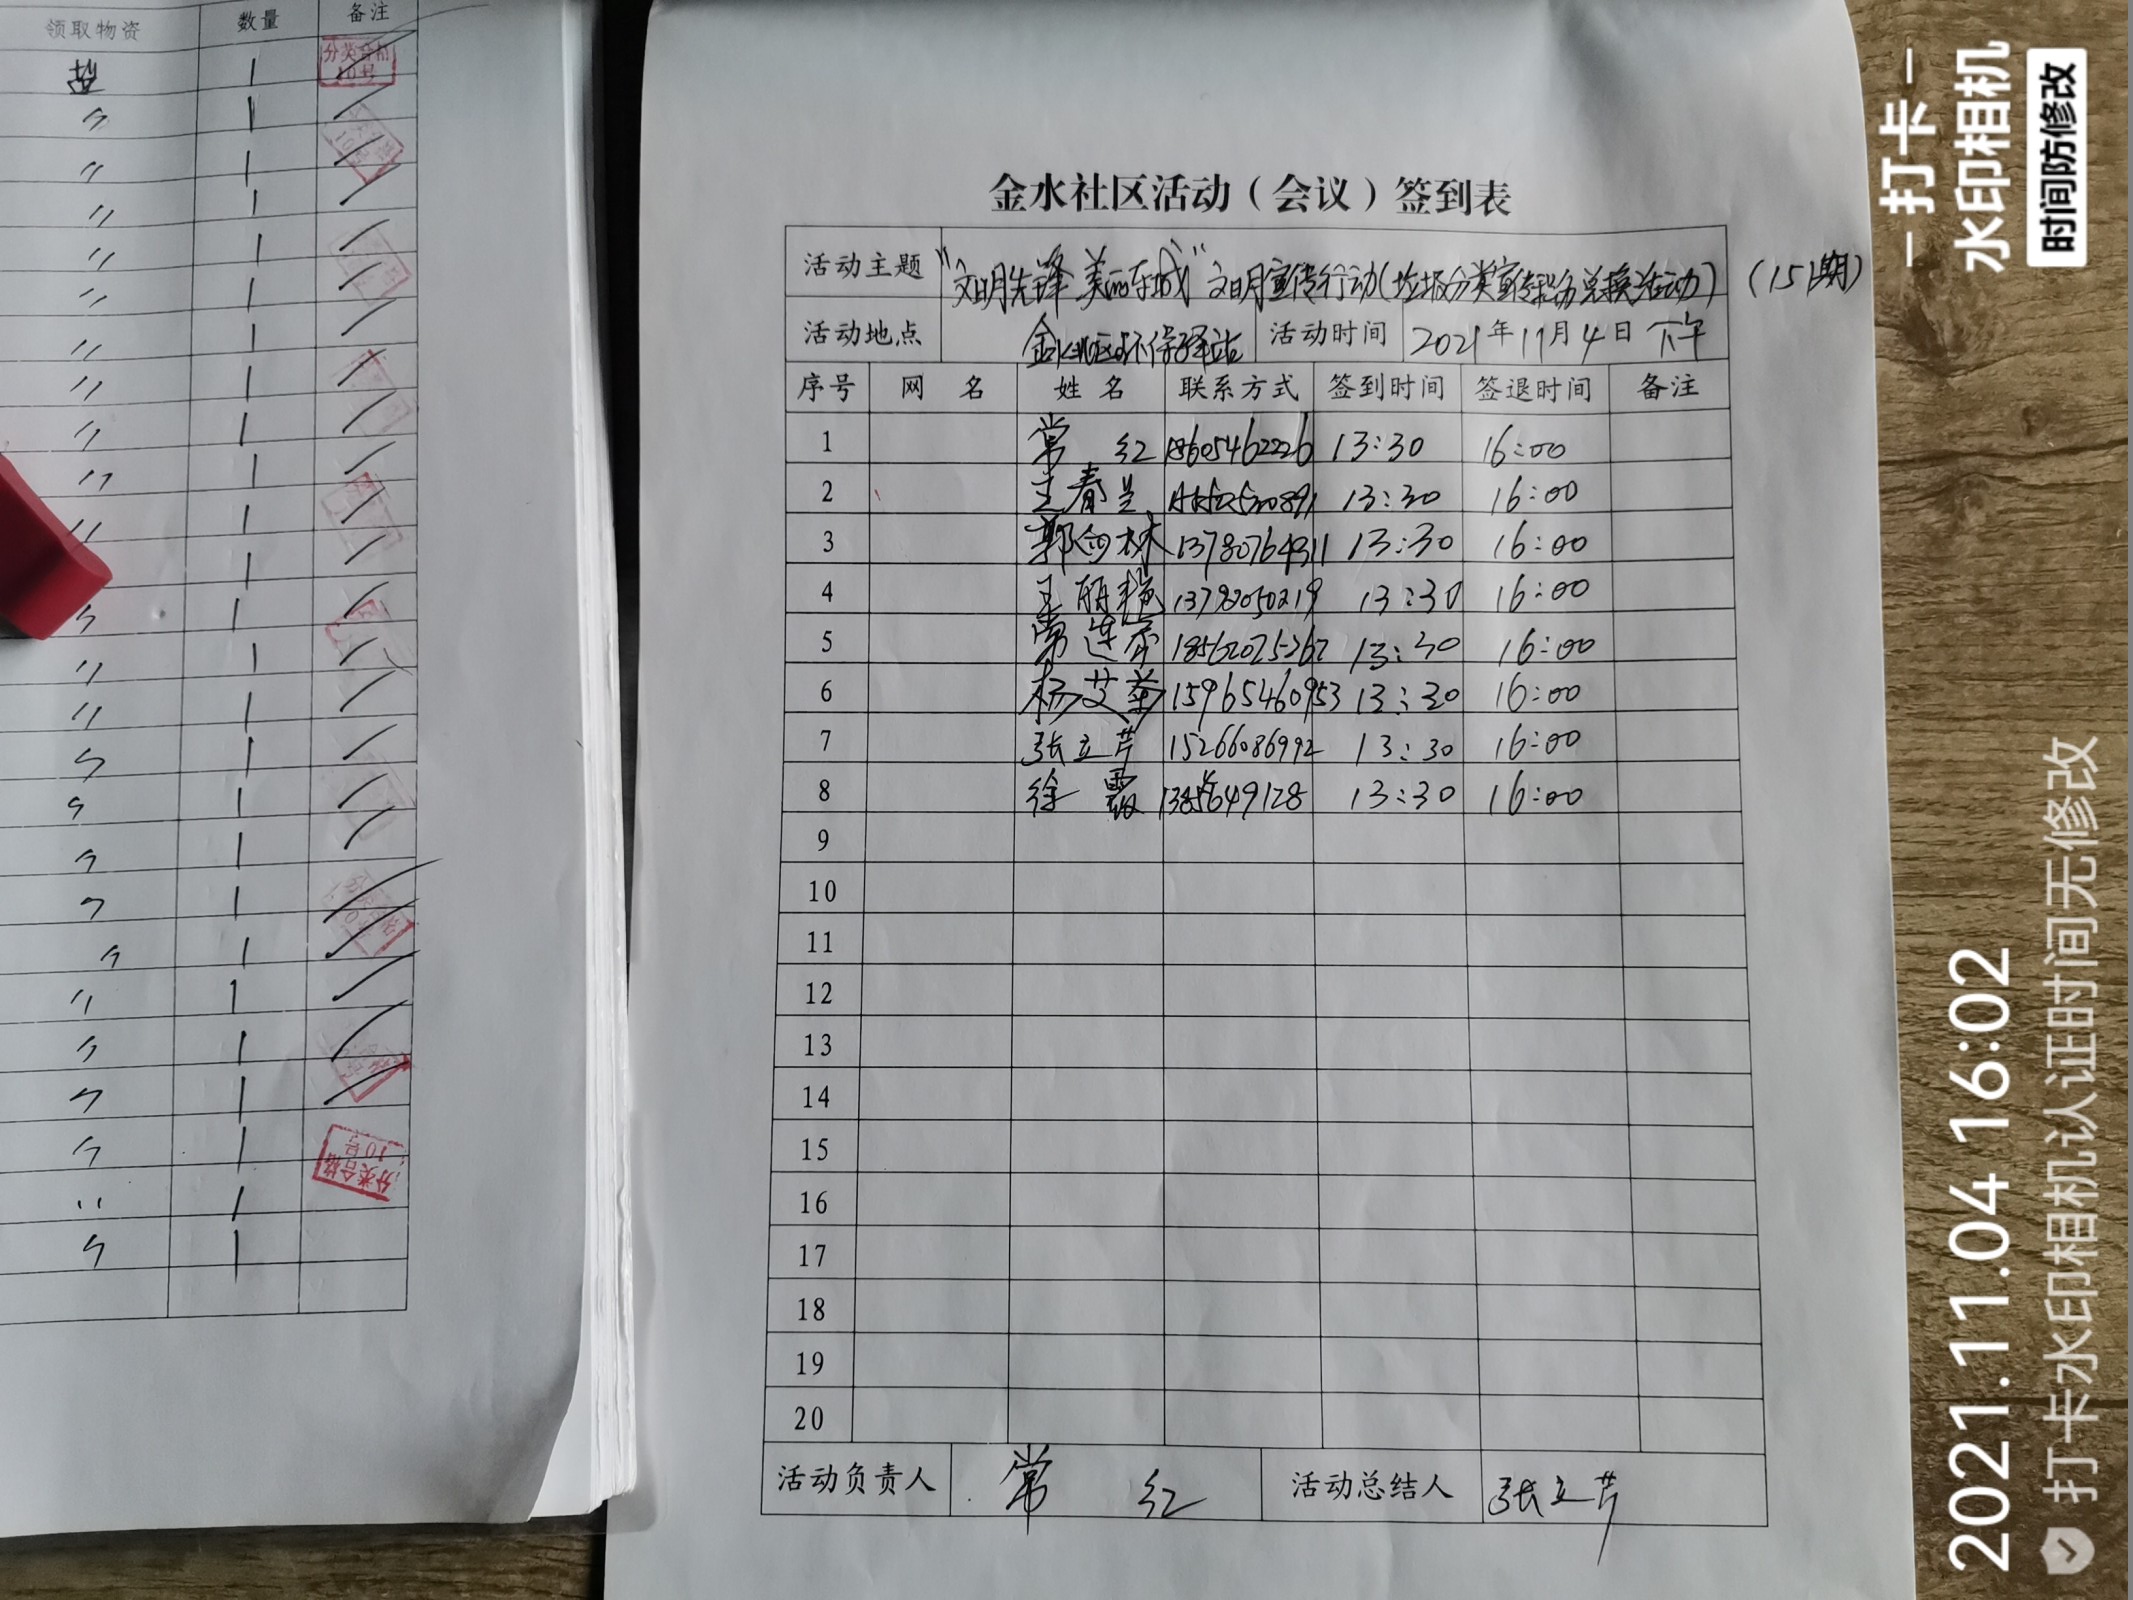 领取物资 数量 备注
1
分类合格
10号
〃 1
〃 1
〃 1
〃 1
〃 1
〃 1
〃 1
〃 1
〃 1
〃 1
〃 1
〃 1
〃 1
〃 1
〃 1
〃 1
〃 1
〃 1
〃 1
〃 1
〃 1
〃 1
〃 1
分类合格
10号
〃 1
〃 1
金水社区活动（会议）签到表
活动主题 “文明先锋 美丽东城”文明宣传行动（垃圾分类宣传积分兑换活动）（151期）
活动地点 金水社区环保驿站 活动时间 2021年11月4日 下午
序号 网 名 姓 名 联系方式 签到时间 签退时间 备注
1 常 红 18605462226 13:30 16:00
2 王春兰 13:30 16:00
3 郭 林 13780764311 13:30 16:00
4 王丽艳 13:30 16:00
5 常连 18562025267 13:30 16:00
6 杨艾菊 15965460953 13:30 16:00
7 张立芹 15266086992 13:30 16:00
8 徐 霞 13:30 16:00
9
10
11
12
13
14
15
16
17
18
19
20
活动负责人 常 红 活动总结人 张立芹
打卡
水印相机
时间防修改
2021.11.04 16:02
打卡水印相机认证时间无修改